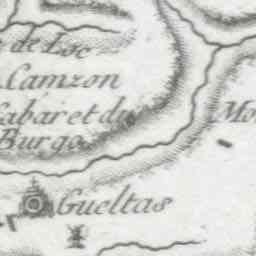 de Loc
Camzon
Cabaret du
Burgo
Mo
Gueltas